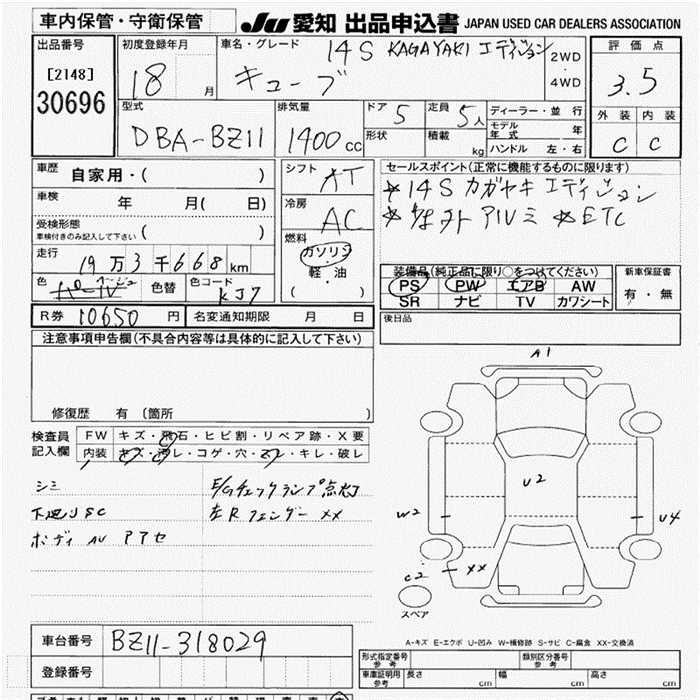 車内保管・守衛保管
JU 愛知 出品申込書 JAPAN USED CAR DEALERS ASSOCIATION
出品番号
[2148]
30696
初度登録年月
18 月
車名・グレード 14S KAGAYAKI エディション
キューブ
2WD
・
4WD
評価点
3.5
外装 内装
C C
型式
DBA-BZ11
排気量
1400cc
ドア 5
形状
定員 5人
積載 kg
ディーラー・並行
モデル年式 年
ハンドル 左・右
車歴 自家用・( )
車検 年 月( 日)
受検形態
車検付きのみ記入して下さい ( )
走行 19万3千668km
色 色替 色コード KJ7
シフト AT
冷房 AC
燃料
ガソリン
・
軽・油
( )
セールスポイント(正常に機能するものに限ります)
14S カガヤキ エディション
アルミ ETC
装備品(純正品に限り○をつけてください)
PS PW エアB AW
SR ナビ TV カワシート
新車保証書
有・無
R券 10650 円 名変通知期限 月 日
後日品
注意事項申告欄(不具合内容等は具体的に記入して下さい)
修復歴 有 〔箇所 〕
検査員記入欄
FW キズ・飛石・ヒビ割・リペア跡・X要
内装 キズ・汚レ・コゲ・穴・スレ・キレ・破レ
シミ
下廻りSC
ボディ AU アアセ
E/Gチェックランプ点灯
左Rフェンダー XX
A1
U2
W2
U4
C2
XX
スペア
A-キズ E-エクボ U-凹み W-補修跡 S-サビ C-腐食 XX-交換済
車台番号 BZ11-318029
登録番号
形式指定番号 参考
類別区分番号 参考
車庫証明用 参考 長さ cm 幅 cm 高さ cm